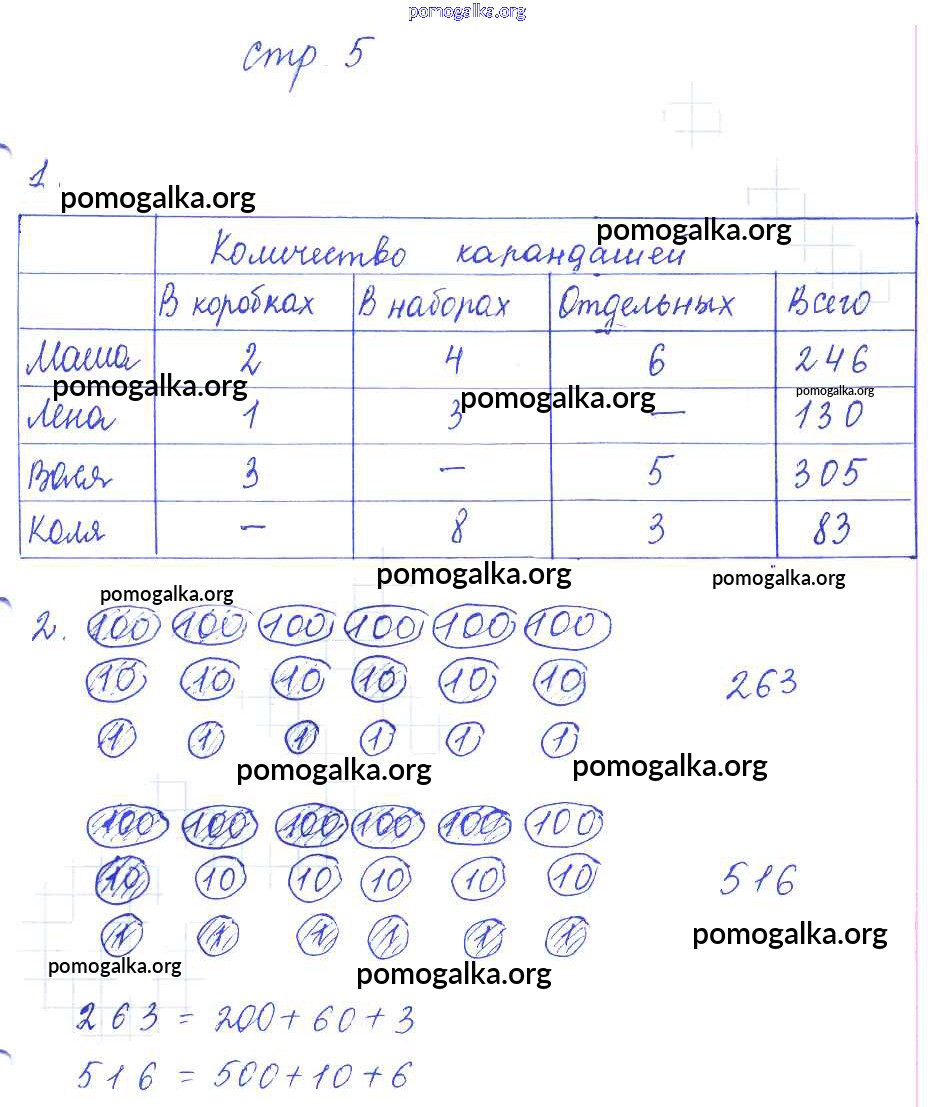 pomogalka.org
стр. 5
1.
pomogalka.org
Количество карандашей
pomogalka.org
В коробках В наборах Отдельных Всего
Маша 2 4 6 246
pomogalka.org pomogalka.org pomogalka.org
Лена 1 3 — 130
Вася 3 — 5 305
Коля — 8 3 83
pomogalka.org pomogalka.org
pomogalka.org
2. 100 100 100 100 100 100
10 10 10 10 10 10 263
1 1 1 1 1 1
pomogalka.org pomogalka.org
100 100 100 100 100 100
10 10 10 10 10 10 516
1 1 1 1 1 1
pomogalka.org
pomogalka.org pomogalka.org
263 = 200 + 60 + 3
516 = 500 + 10 + 6